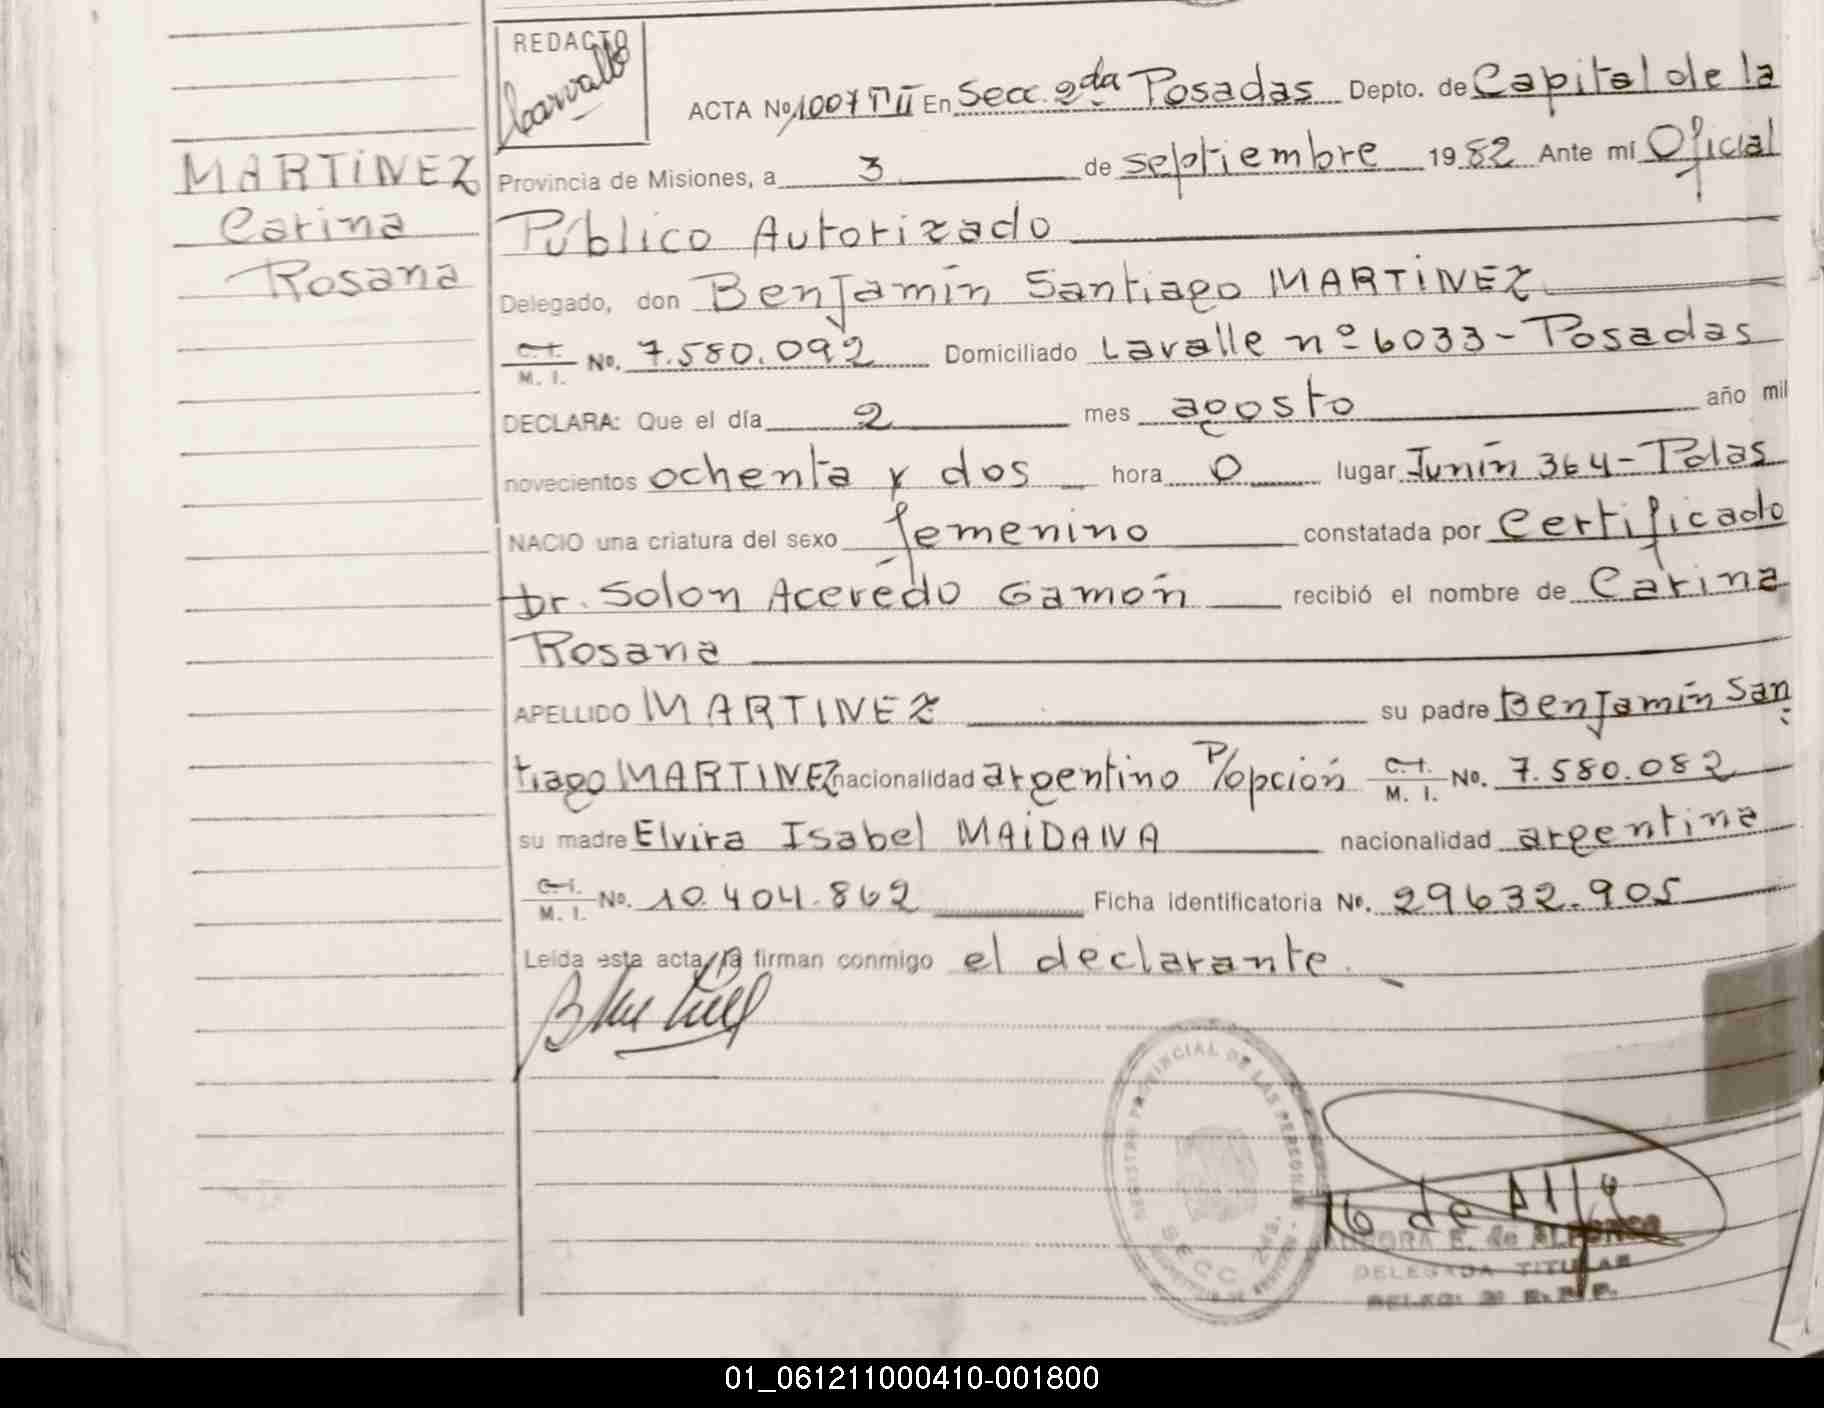 REDACTO
Carvallo
ACTA Nº 1007 TºII En Secc. 2da Posadas Depto. de Capital de la
MARTINEZ
Carina
Rosana
Provincia de Misiones, a 3 de septiembre 1982 Ante mí Oficial
Público Autorizado
Delegado, don Benjamín Santiago MARTINEZ
C.I. M. I. No. 7.580.092 Domiciliado Lavalle nº 6033-Posadas
DECLARA: Que el día 2 mes agosto año mil
novecientos ochenta y dos hora 0 lugar Junín 364-Pdas
NACIO una criatura del sexo femenino constatada por Certificado
Dr. Solon Acevedo Gamón recibió el nombre de Carina
Rosana
APELLIDO MARTINEZ su padre Benjamín San
tiago MARTINEZ nacionalidad argentino P/opción C.I. M. I. No. 7.580.082
su madre Elvira Isabel MAIDANA nacionalidad argentina
C.I. M. I. No. 10.404.862 Ficha identificatoria Nº. 29632.905
Leída esta acta, la firman conmigo el declarante.
REGISTRO PROVINCIAL DE LAS PERSONAS
SECC. 2da.
E. de ALFONSO
DELEGADA TITULAR
01_061211000410-001800